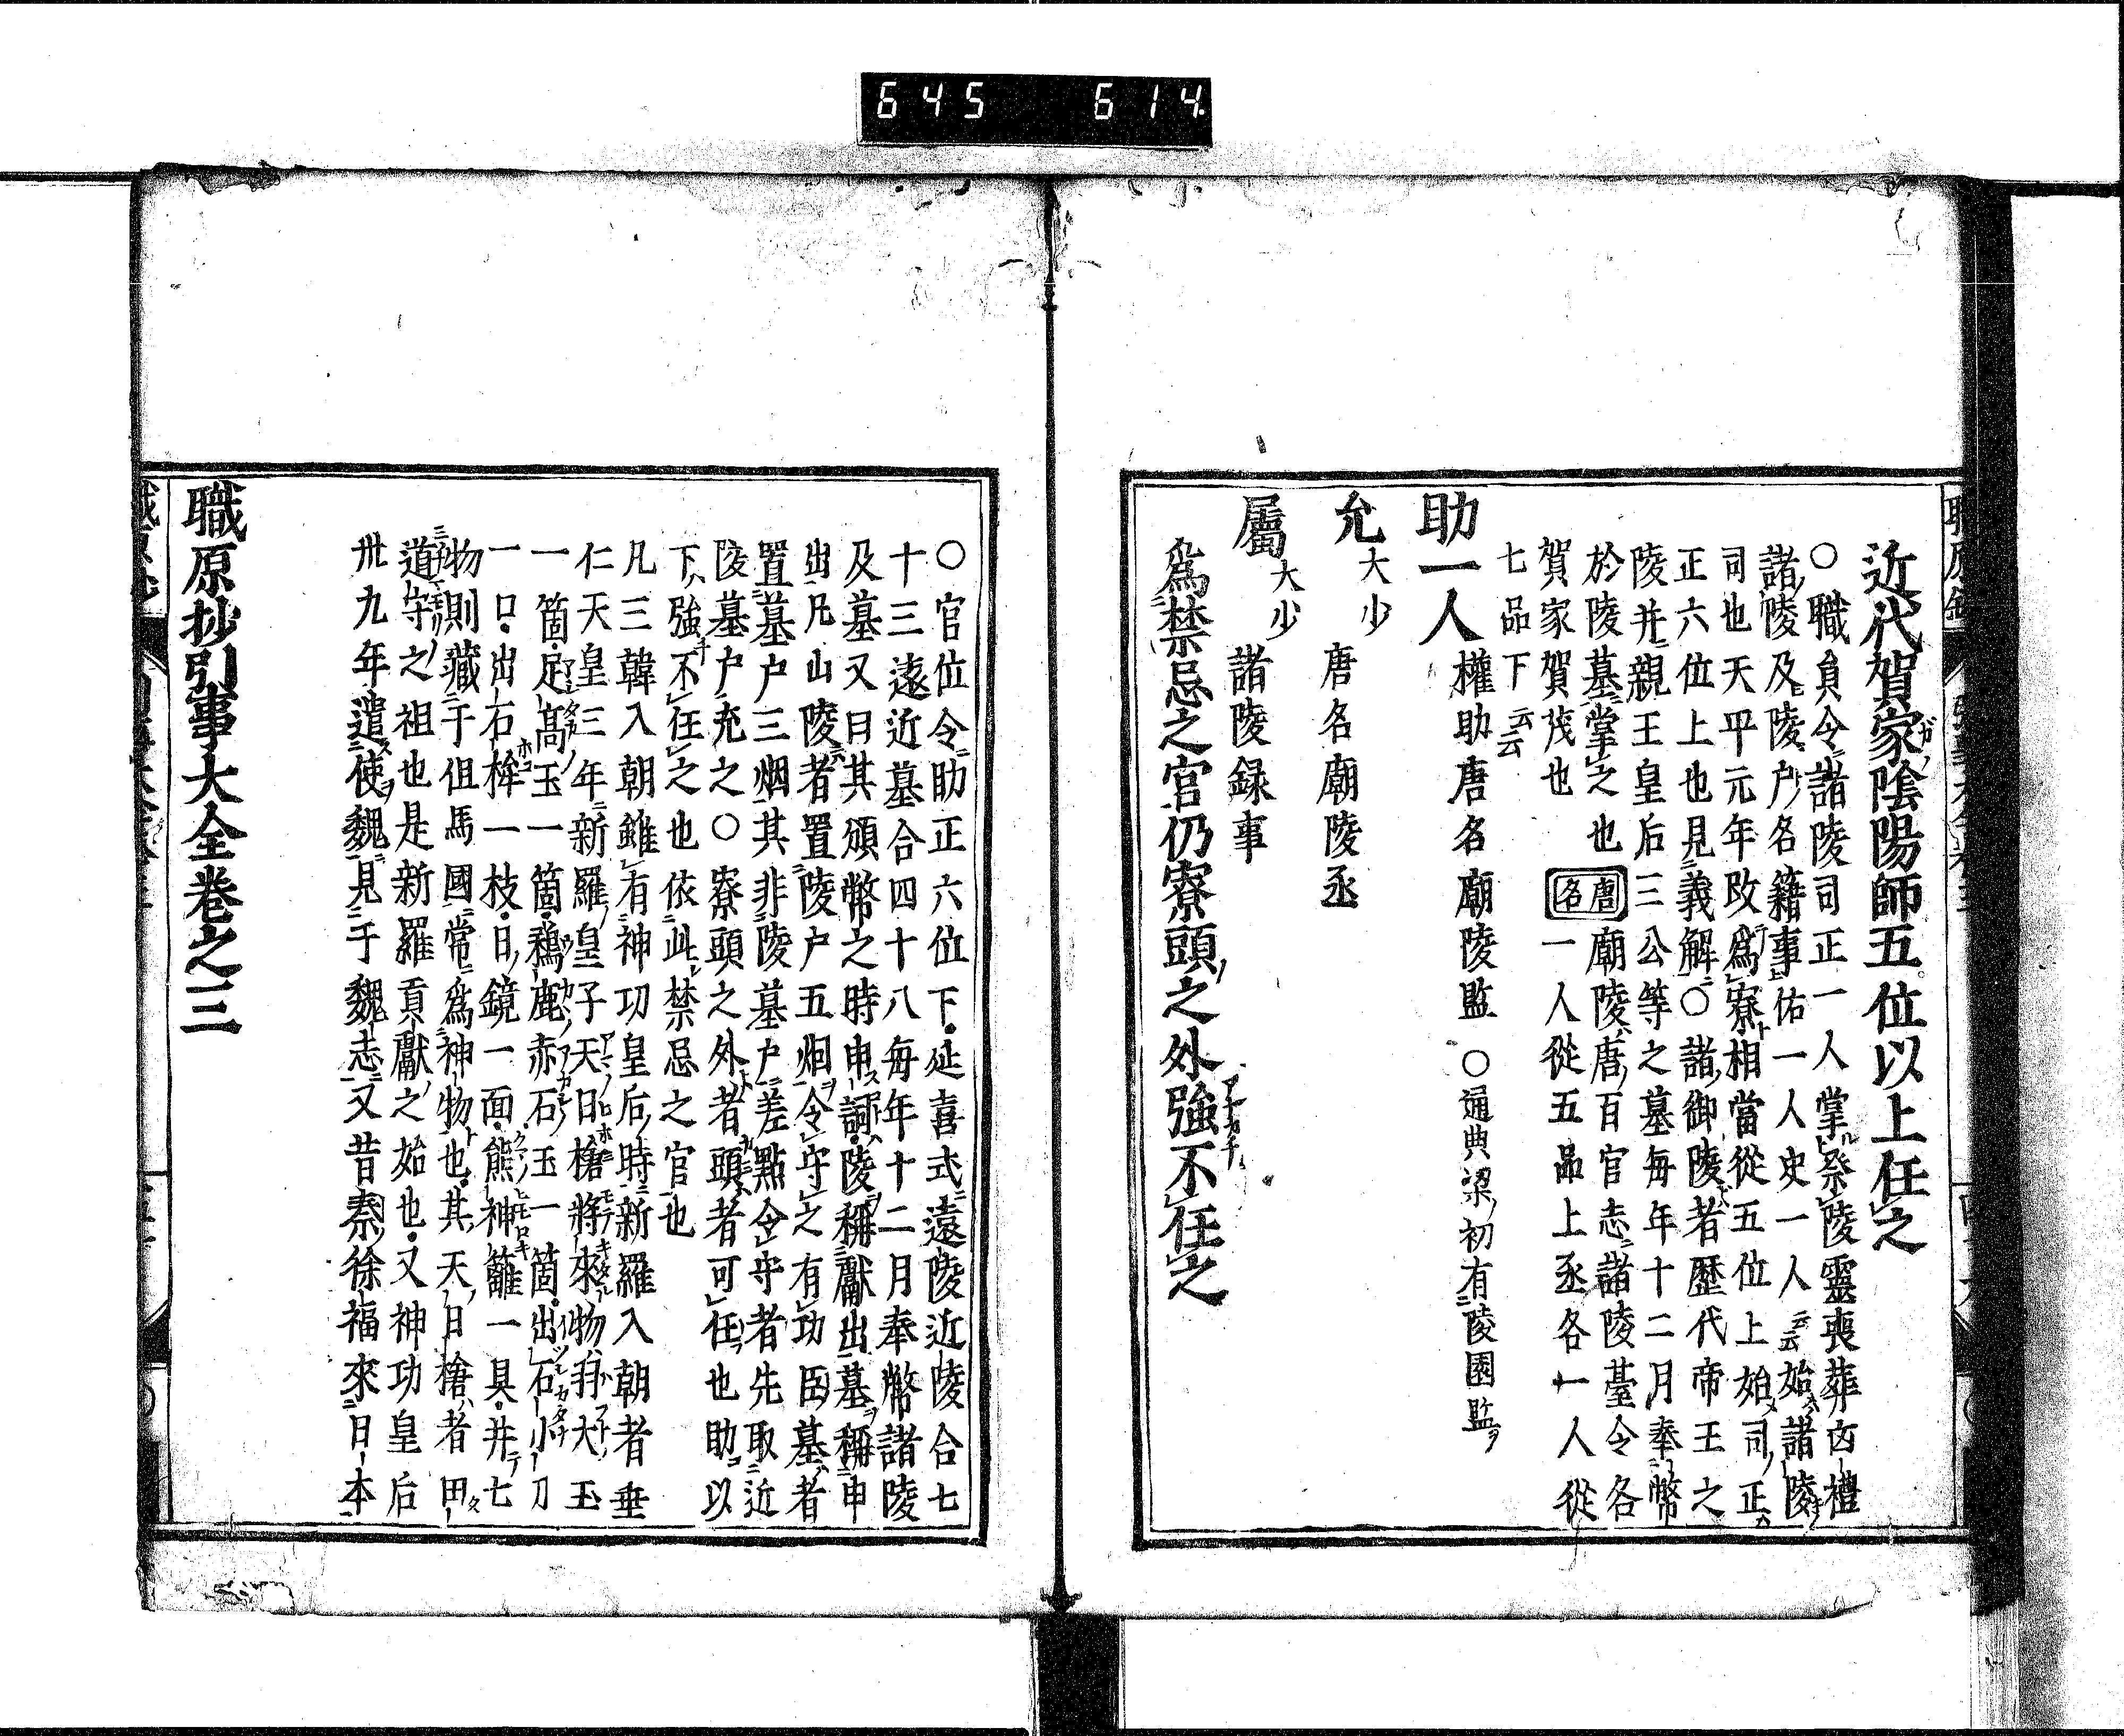 645 614
近代賀家陰陽師五位以上任之
○職員令諸陵司正一人掌祭陵靈喪葬凶禮
諸陵及陵戸名籍事佑一人史一人云云始諸陵
司也天平元年改為寮相當從五位上始司正
正六位上也見義解○諸御陵者歷代帝王之
陵并親王皇后三公等之墓每年十二月奉幣
於陵墓掌之也 唐名 廟陵唐百官志諸陵臺令各
賀家賀茂也 一人從五品上丞各一人從
七品下云云
助一人 權助唐名廟陵監 ○通典梁初有陵園監
允 大少 唐名廟陵丞
屬 大少 諸陵録事
為禁忌之官仍寮頭之外強不任之
○官位令助正六位下延喜式遠陵近陵合七
十三遠近墓合四十八每年十二月奉幣諸陵
及墓又曰其頒幣之時申詞陵稱獻出墓稱申
出凡山陵者置陵戸五烟令守之有功臣墓者
置墓戸三烟其非陵墓戸差點令守者先取近
陵墓戸充之○寮頭之外者頭者可任也助以
下強不任之也依此禁忌之官也
凡三韓入朝雖有神功皇后時新羅入朝者垂
仁天皇三年新羅皇子天日槍將來物羽太玉
一箇足高玉一箇鵜鹿赤石玉一箇出石小刀
一口出石桙一枝日鏡一面熊神籬一具并七
物則藏于但馬國常為神物也其天日槍者田
道守之祖也是新羅貢獻之始也又神功皇后
卅九年遣使魏見于魏志又昔秦徐福來日本
職原抄引事大全卷之三